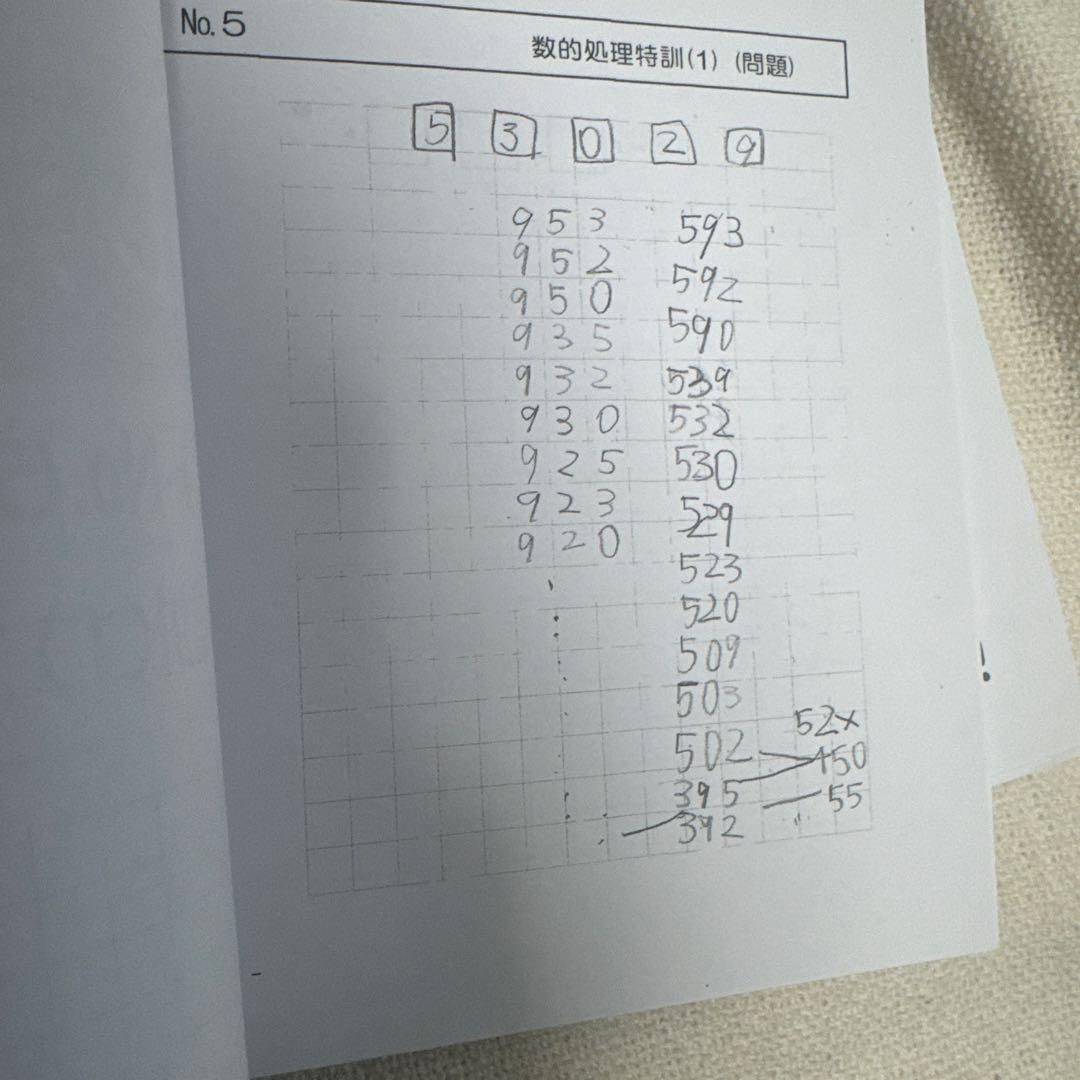 No. 5
数的処理特訓(1) (問題)
5 3 0 2 9
953
952
950
935
932
930
925
923
920
593
592
590
539
532
530
529
523
520
509
503
502
395
392
52×
450
55